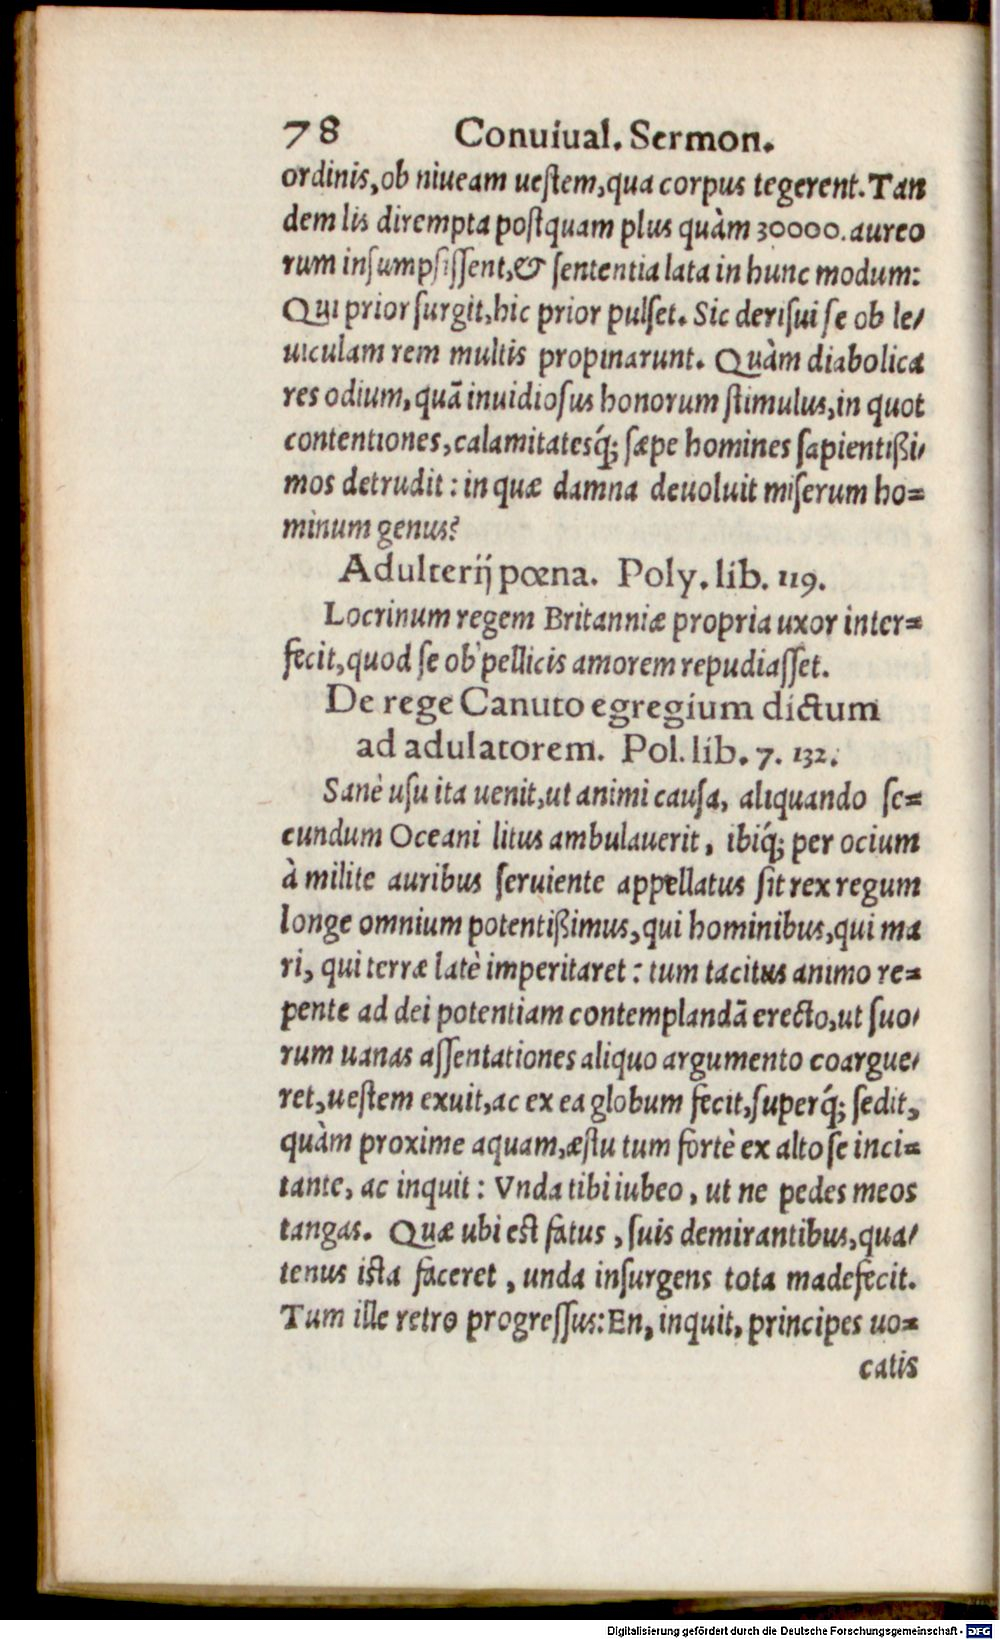 78 Conuiual. Sermon.
ordinis, ob niueam uestem, qua corpus tegerent. Tan
dem lis dirempta postquam plus quàm 30000. aureo
rum insumpsissent, & sententia lata in hunc modum:
Qui prior surgit, hic prior pulset. Sic derisui se ob le/
uiculam rem multis propinarunt. Quàm diabolica
res odium, quā inuidiosus honorum stimulus, in quot
contentiones, calamitatesq́; sæpe homines sapientißi/
mos detrudit: in quæ damna deuoluit miserum ho=
minum genus?
Adulterij pœna. Poly. lib. 119.
Locrinum regem Britanniæ propria uxor inter=
fecit, quod se ob pellicis amorem repudiasset.
De rege Canuto egregium dictum
ad adulatorem. Pol. lib. 7. 132.
Sanè usu ita uenit, ut animi causa, aliquando se=
cundum Oceani litus ambulauerit, ibiq́; per ocium
à milite auribus seruiente appellatus sit rex regum
longe omnium potentißimus, qui hominibus, qui ma
ri, qui terræ latè imperitaret: tum tacitus animo re=
pente ad dei potentiam contemplandā erecto, ut suo/
rum uanas assentationes aliquo argumento coargue/
ret, uestem exuit, ac ex ea globum fecit, superq́; sedit,
quàm proxime aquam, æstu tum fortè ex alto se inci=
tante, ac inquit: Vnda tibi iubeo, ut ne pedes meos
tangas. Quæ ubi est fatus, suis demirantibus, qua/
tenus ista faceret, unda insurgens tota madefecit.
Tum ille retro progressus: En, inquit, principes uo=
catis
Digitalisierung gefördert durch die Deutsche Forschungsgemeinschaft - DFG